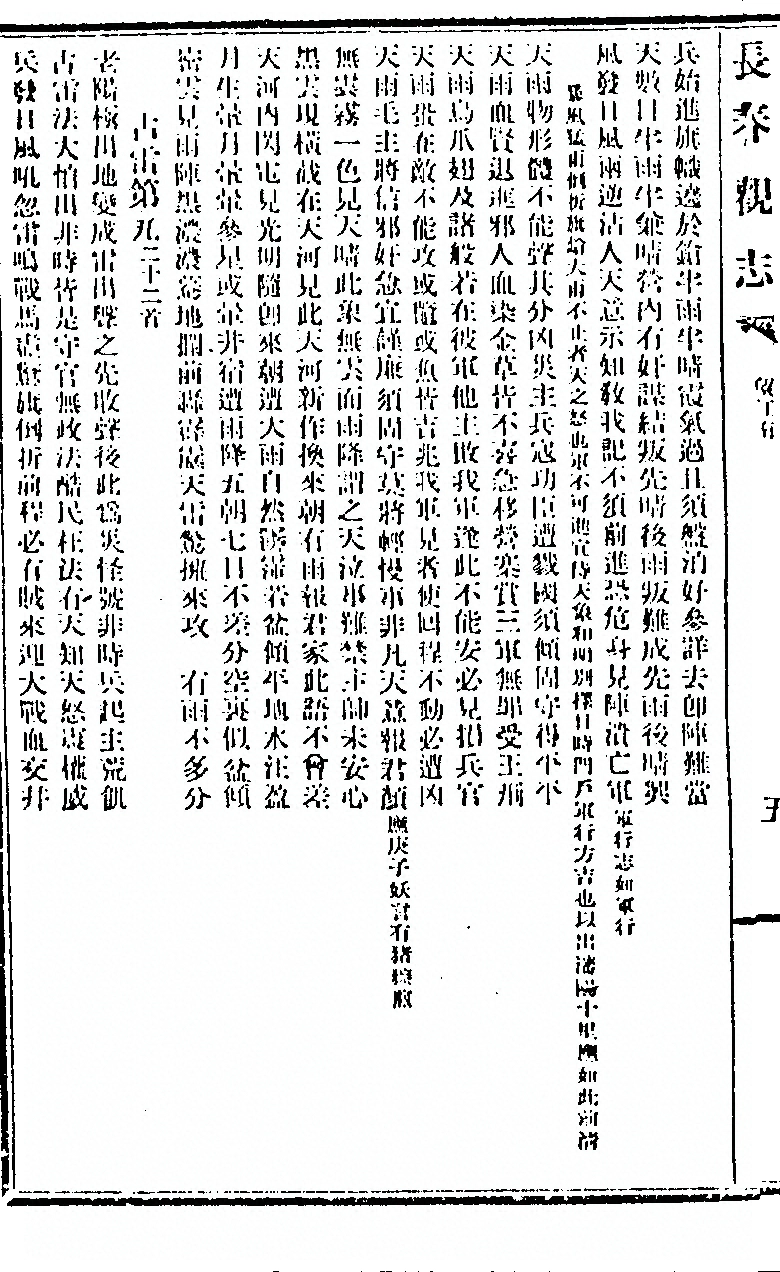 長春觀志
兵始進旗幟邊於鎗半雨半晴霞氣過且須盤泊好參詳去卽陣難當
天數日半雨半兼晴營內有奸謀結叛先晴後雨叛難成先雨後晴興
風發日風雨逆沾人天意示知敎我記不須前進恐危身見陣潰亡軍軍行志如軍行
暴風猛雨倒折旗鎗大雨不止者天之怒也軍不可進宜待天象和明別擇日時門戶軍行方吉也以出十里應如此前
天雨物形體不能聲其分凶災主兵寇功臣遭戮國須傾固守得平平
天雨血賢退進邪人血染金草皆不容急移營寨賞三軍無罪受王刑
天雨鳥爪翅及諸般若在彼軍他主敗我軍逢此不能安必見損兵官
天雨蟲在敵不能攻或龜或魚皆吉兆我軍見者便回程不動必遭凶
天雨毛主將信邪奸急宜謹廉須固守莫將輕慢事非凡天意報君顏應庚子妖言有豬
無雲霧一色見天晴此象無雲而雨降謂之天泣事難禁主帥未安心
黑雲現橫截在天河見此天河新作換來朝有雨報君家此語不會差
天河內閃電見光明隨創來朝遭大雨自然滂沛若盆傾平地水汪盈
月生暈月暈暈參星或暈井宿遭雨降五朝七日不差分空裏似盆傾
密雲見雨陣黑濃濃蓋地攔前轟霹靂天雷驚擁來攻 有雨不多分
占雷第九二十二首
老陽極出地變成雷出聲之先收聲後此爲災怪號非時兵起主荒飢
占雷法大怕出非時皆是守官無政法酷民枉法有天知天怒震權威
兵發日風吼忽雷鳴戰馬震旗倒折前程必有賊來迎大戰血交幷